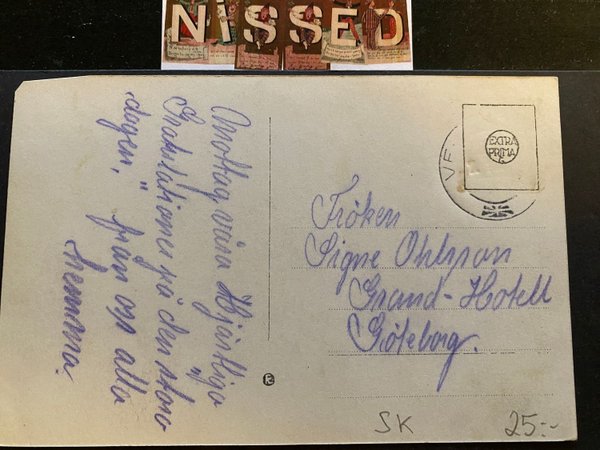 NISSED
Mottag våra Hjärtliga
Gratulationer på den "stora
dagen," från oss alla
hemma.
EXTRA
PRIMA
VE
Fröken
Signe Ohlsson
Grand-Hotell
Göteborg.
SK
25:-